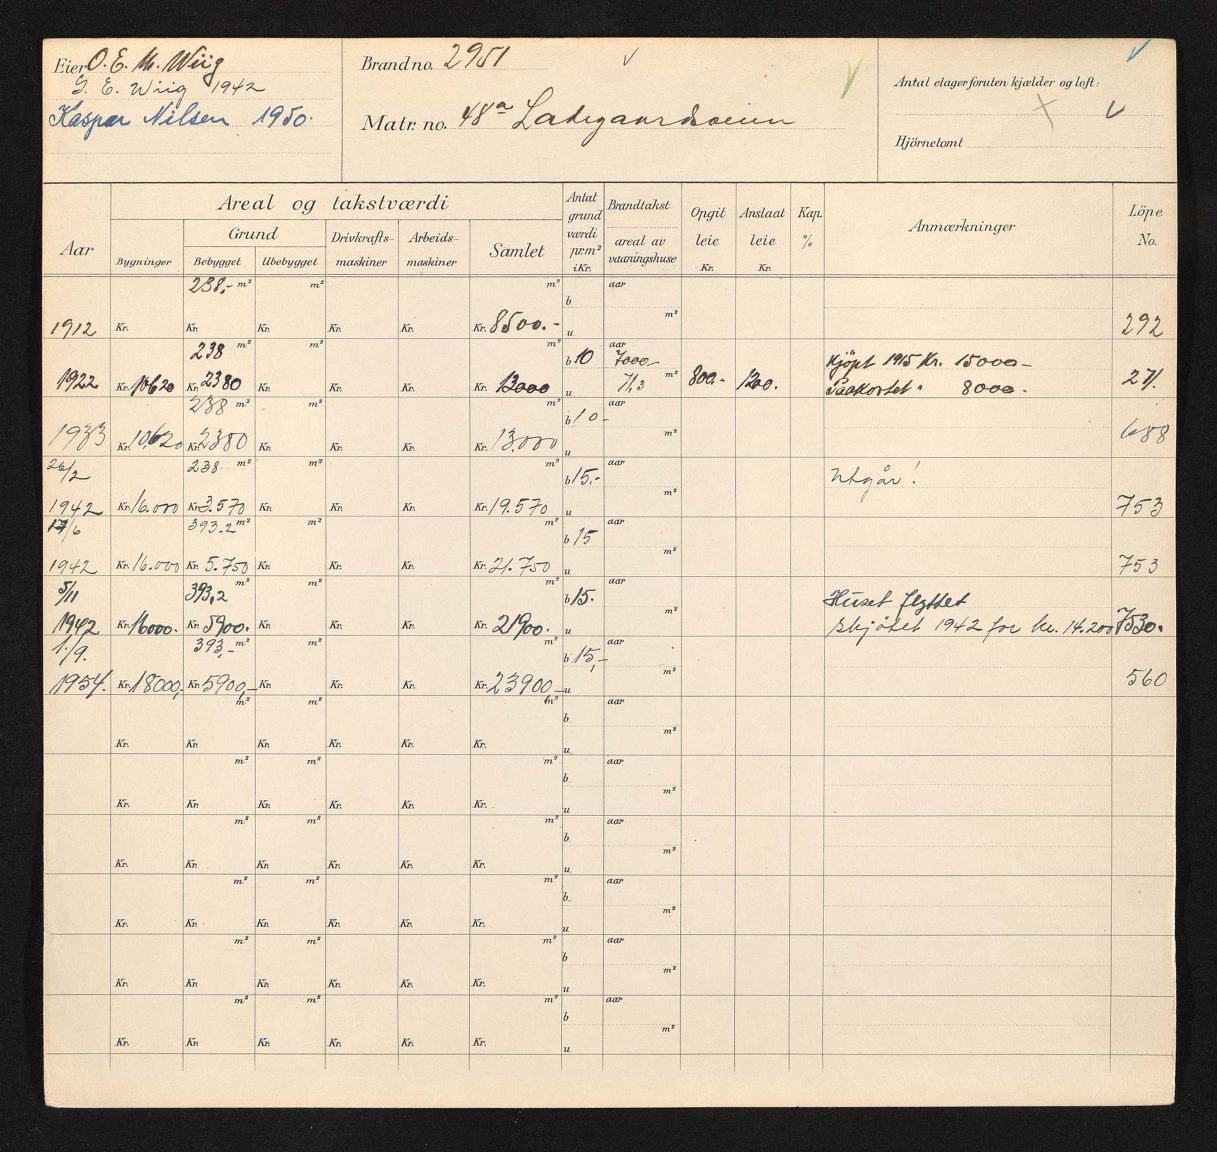 Eier O. E. M. Wiig
G. E. Wiig 1942
Kaspar Nilsen 1950.
Brand no. 2951
Matr. no. 48a Ladegaardsveien
Antal etager foruten kjælder og loft:
Hjörnetomt
Aar
Areal og takstværdi
Bygninger
Grund
Bebygget
Ubebygget
Drivkrafts-
maskiner
Arbeids-
maskiner
Samlet
Antat
grund
værdi
pr. m²
i Kr.
Brandtakst
areal av
vaaningshuse
Opgit
leie
Kr.
Anslaat
leie
Kr.
Kap.
%
Anmærkninger
Löpe
No.
238,- m² m² m² b aar
1912 Kr. Kr. Kr. Kr. Kr. Kr. 8500.- u m² 292
238 m² m² m² b 10 aar 7000.- Kjöpt 1915 Kr. 15000-
1922 Kr. 10620 Kr. 2380 Kr. Kr. Kr. Kr. 13000 u 71,3 m² 800.- 1200. Paakostet " 8000- 271.
238 m² m² m² b 10- aar
1933 Kr. 10.620 Kr. 2380 Kr. Kr. Kr. Kr. 13.000 u m² 688
26/2 238 m² m² m² b 15.- aar Utgår!
1942 Kr. 16.000 Kr. 3.570 Kr. Kr. Kr. Kr. 19.570 u m² 753
17/6 393.2 m² m² m² b 15 aar
1942 Kr. 16.000 Kr. 5.750 Kr. Kr. Kr. Kr. 21.750 u m² 753
5/11 393,2 m² m² m² b 15. aar Huset flyttet
1942 Kr. 16000. Kr. 5900. Kr. Kr. Kr. Kr. 21900. u m² skjötet 1942 for kr. 14.200 7530.
1./9. 393,- m² m² m² b 15,- aar
1954. Kr. 18000,- Kr. 5900,- Kr. Kr. Kr. Kr. 23900,- u m² 560
m² m² m² b aar
Kr. Kr. Kr. Kr. Kr. Kr. u m²
m² m² m² b aar
Kr. Kr. Kr. Kr. Kr. Kr. u m²
m² m² m² b aar
Kr. Kr. Kr. Kr. Kr. Kr. u m²
m² m² m² b aar
Kr. Kr. Kr. Kr. Kr. Kr. u m²
m² m² m² b aar
Kr. Kr. Kr. Kr. Kr. Kr. u m²
m² m² m² b aar
Kr. Kr. Kr. Kr. Kr. Kr. u m²